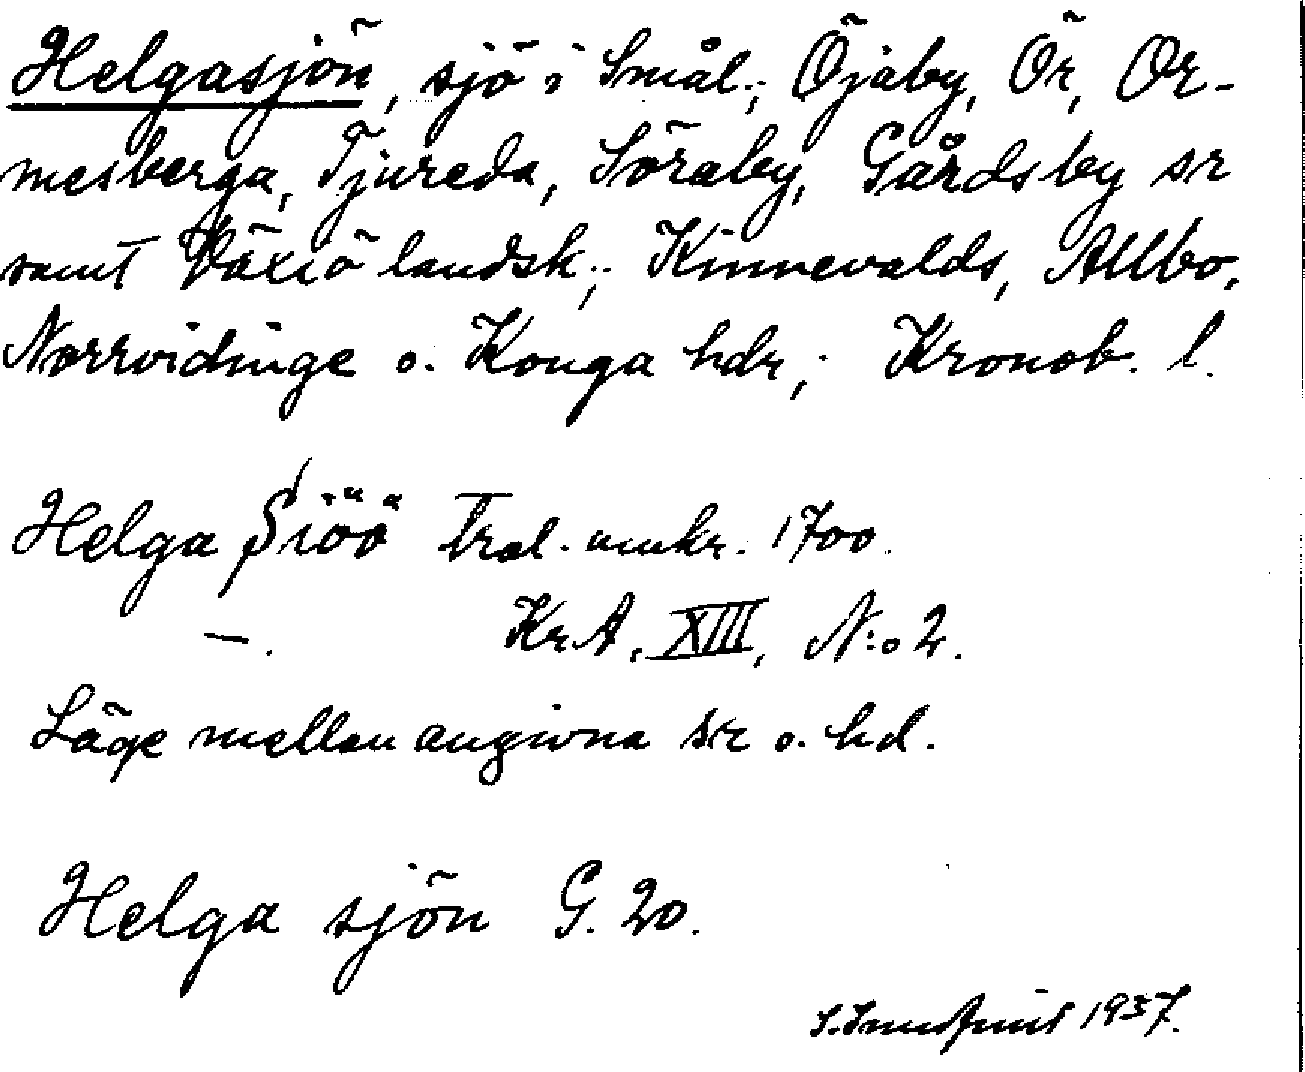 Helgasjön, sjö i Smål.; Öjaby, Ör, Or-
mesberga, Tjureda, Söraby, Gårdsby sr
samt Växiö landsk.; Kinnevalds, Allbo,
Norrvidinge o. Konga hdr; Kronob. l.
Helga Siöö Trol. omkr. 1700.
—. Kr.A. XIII, N:o 2.
Läge mellan angivna sr o. hd.
Helga sjön G. 20.
1937.